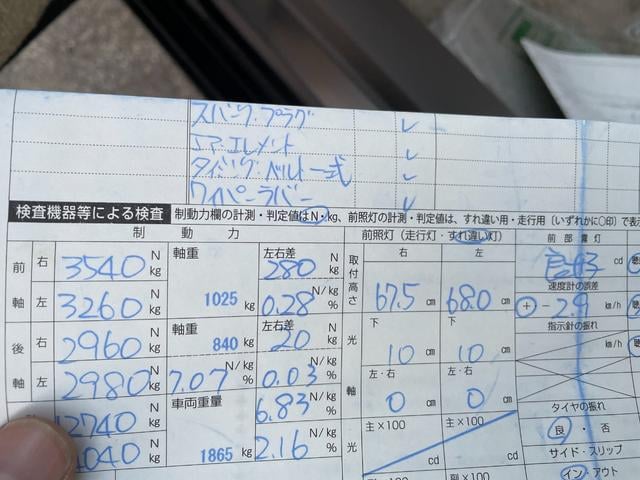 スパークプラグ レ
エアーエレメント レ
タイミングベルト一式 レ
ワイパーラバー レ
検査機器等による検査 制動力欄の計測・判定値はN・kg、前照灯の計測・判定値は、すれ違い用・走行用〔いずれかに○印〕で表示
制動力 前照灯(走行灯・すれ違い灯) 前部霧灯
前軸 右 3540 N kg 軸重 1025 kg 左右差 280 N kg
左 3260 N kg 0.28 N/kg %
取付高さ 右 67.5 cm 左 68.0 cm
cd
速度計の誤差
+ - 2.9 km/h
指示針の振れ
km/h
後軸 右 2960 N kg 軸重 840 kg 左右差 20 N kg
左 2980 N kg 7.07 N/kg % 0.03 N/kg %
光軸 下 10 cm 下 10 cm
左・右 0 cm 左・右 0 cm
タイヤの振れ
良・否
サイド・スリップ
イン・アウト
12740 N kg 車両重量 1865 kg 6.83 N/kg %
040 N kg 2.16 N/kg %
光 主×100 cd 主×100 cd
副×100